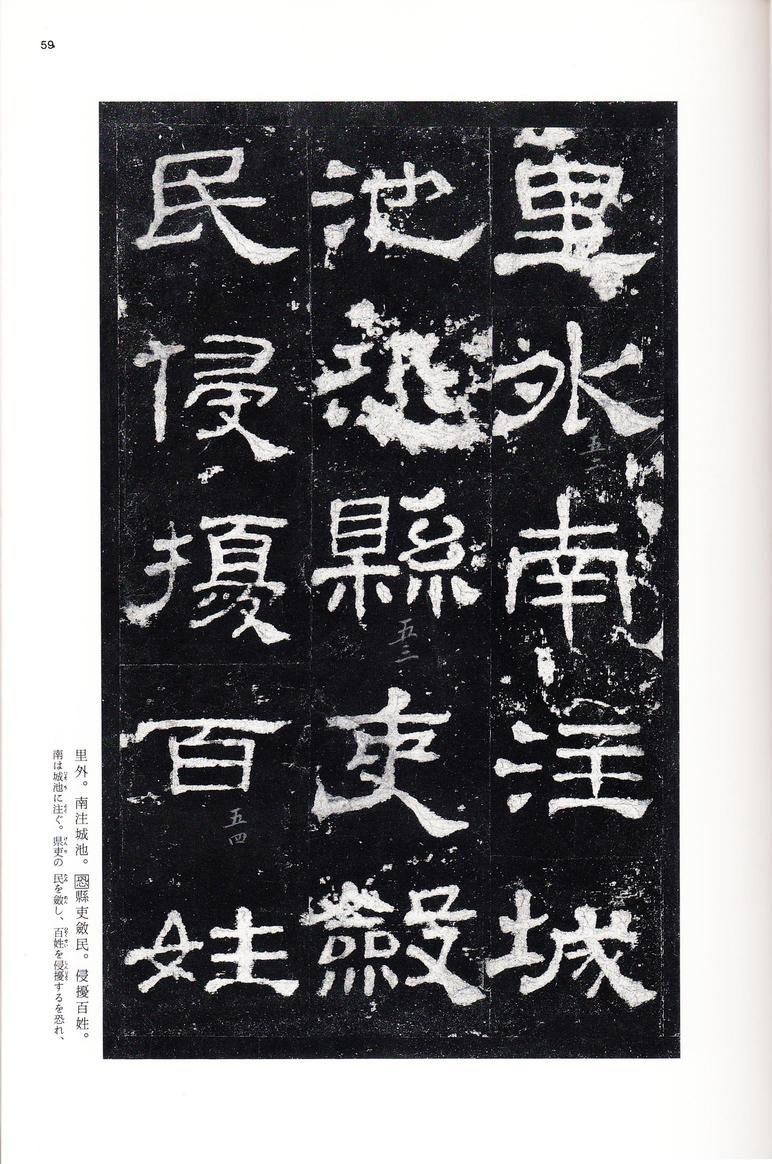 59
里外南注城
池恐縣吏斂
民侵擾百姓
五二
五三
五四
里外。南注城池。恐縣吏斂民。侵擾百姓。
南は城池に注ぐ。県吏の民を斂し、百姓を侵擾するを恐れ、